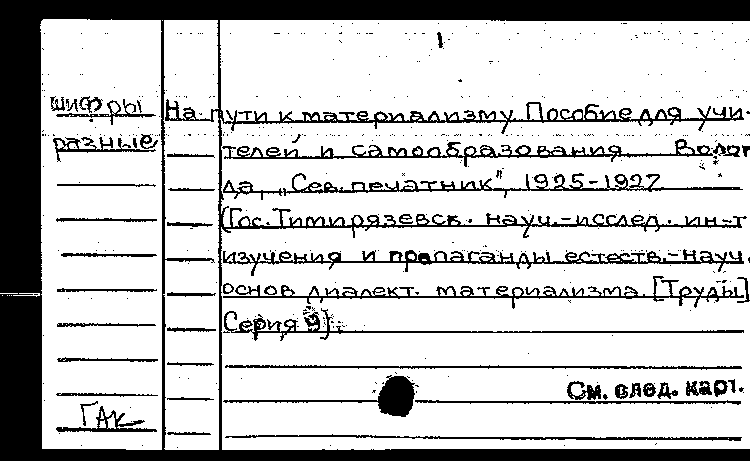 шифры На пути к материализму. Пособие для учи-
разные телей и самообразования. Волог
да, „Сев. печатник", 1925-1927
(Гос. Тимирязевск. науч.-исслед. ин-т
изучения и пропаганды естеств.-науч.
основ диалект. материализма. [Труды]
Серия 9).
См. след. карт.
ГАК